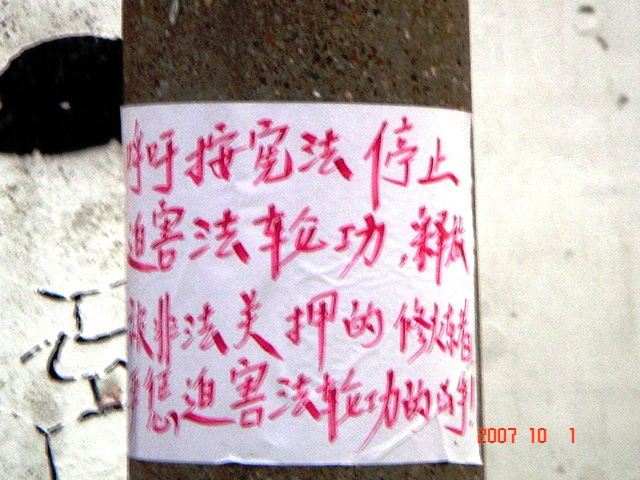 呼吁按宪法停止
迫害法轮功,释放
被非法关押的修炼者
严惩迫害法轮功的凶手!
2007 10 1